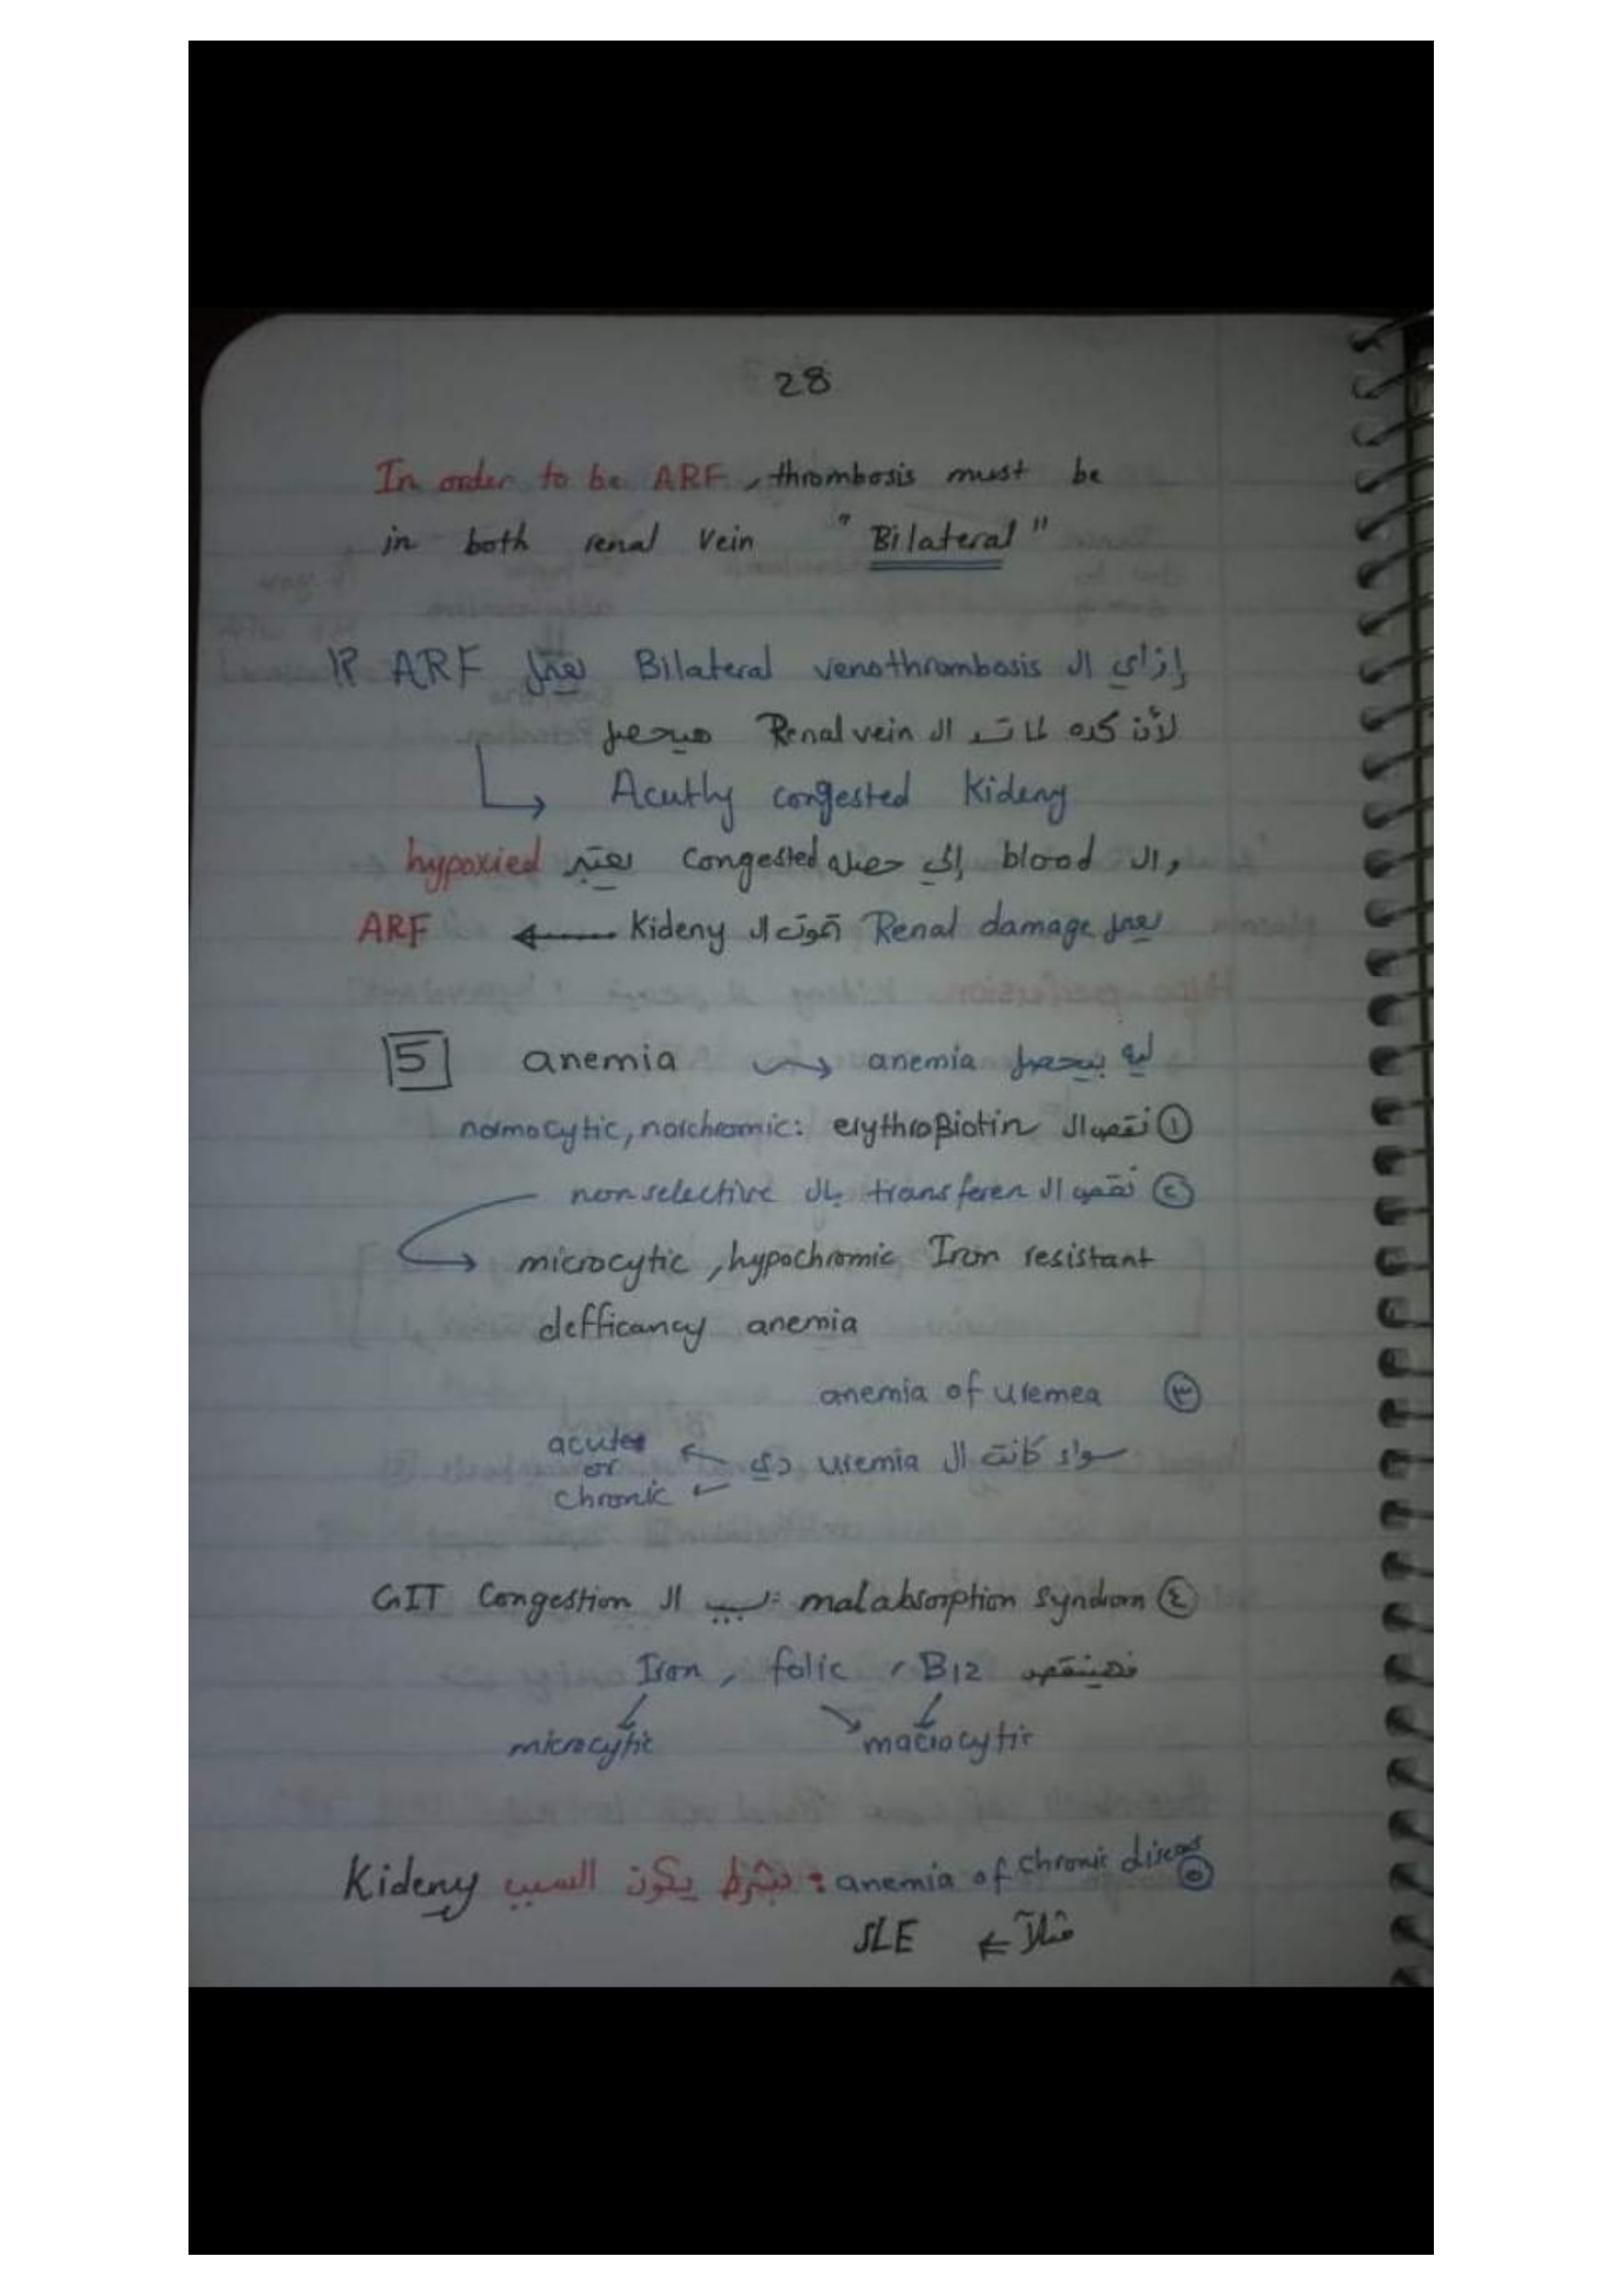 28
In order to be ARF, thrombosis must be
in both renal vein "Bilateral"
إزاي ال Bilateral venothrombosis يعمل ARF ؟!
لأن كده لما ال Renal vein هيحصل
Acuthy congested Kideny
وال blood إلي حصله congested يعتبر hypoxied
يعمل Renal damage تموت ال Kideny ← ARF
5 anemia ⟿ ليه بيحصل anemia
① نقص ال erythroBiotin : normocytic, norchromic
② نقص ال transferen بال non selective
→ microcytic, hypochromic Iron resistant
defficancy anemia
③ anemia of uremea
سواء كانت ال uremia دي ← acute
or
chronic
④ malabsorption syndrom بسبب ال GIT Congestion
فهينقص B12 , folic , Iron
microcytic macrocytic
⑤ anemia of chronic diseas : بشرط يكون السبب Kideny
مثلاً ⇐ SLE